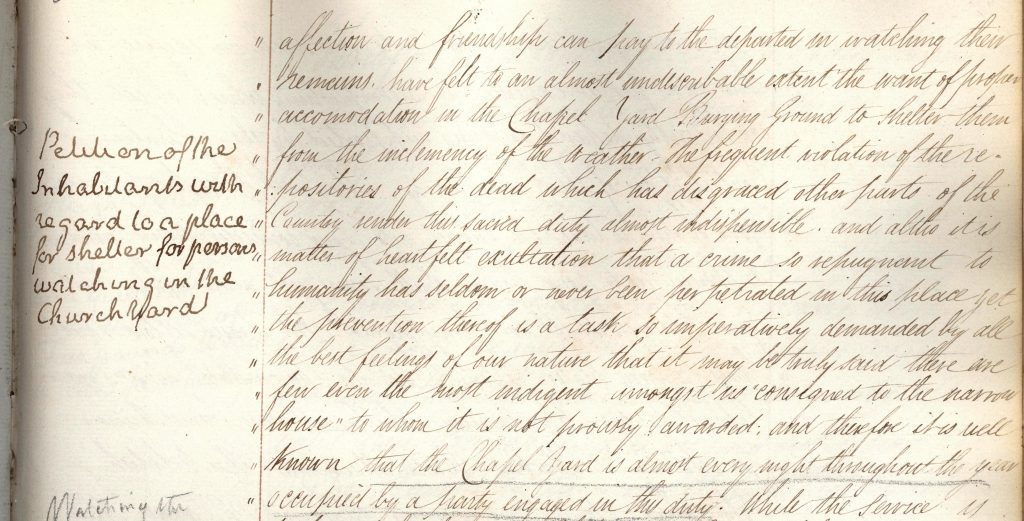 Petition of the
Inhabitants with
regard to a place
for shelter for persons
watching in the
Church Yard
Watching the
" affection and friendship can pay to the departed in watching their
" remains. have felt to an almost undescribable extent the want of proper
" accomodation in the Chapel Yard Burying Ground to shelter them
" from the inclemency of the weather. The frequent violation of the re-
" positories of the dead which has disgraced other parts of the
" Country render this sacred duty almost indispensible. and altho it is
" matter of heartfelt exultation that a crime so repugnant to
" humanity has seldom or never been perpetrated in this place yet
" the prevention thereof is a task so imperatively demanded by all
" the best feelings of our nature that it may be truly said there are
" few even the most indigent amongst us "consigned to the narrow
" house" to whom it is not proudly awarded. and therefore it is well
" known that the Chapel Yard is almost every night throughout the year
" occupied by a party engaged in this duty. While the service is